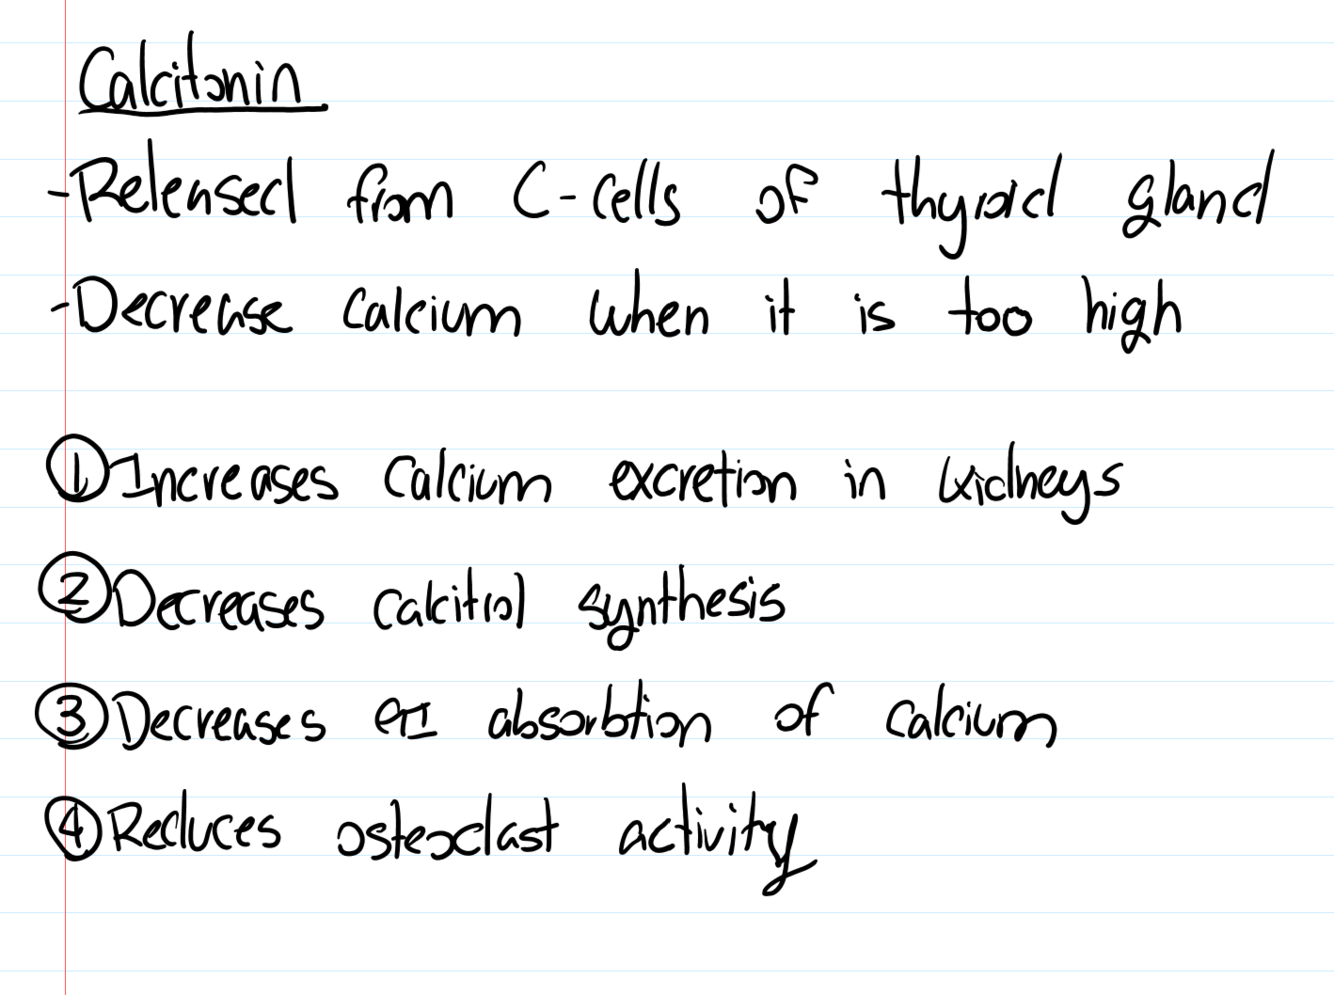 Calcitonin
-Released from C-cells of thyroid gland
-Decrease calcium when it is too high
①Increases calcium excretion in kidneys
②Decreases calcitrol synthesis
③Decreases absorbtion of calcium
④Reduces osteoclast activity